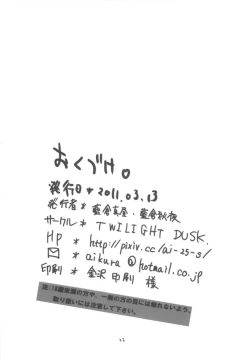 おくづけ。
発行日*2011.03.13
発行者*藍倉真屋・藍倉秋夜
サークル*TWILIGHT DUSK.
HP*http://pixiv.cc/ai-25-s/
✉*aikura@hotmail.co.jp
印刷*金沢印刷様
注:18歳未満の方や、一般の方の目には触れないよう、
取り扱いには注意して下さい。